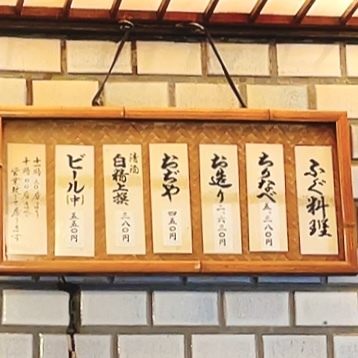 ふぐ料理
ちりなべ 五、八八〇円
お造り 二、六三〇円
おぢや 四五〇円
清酒
白鶴上撰 三八〇円
ビール(中) 五五〇円